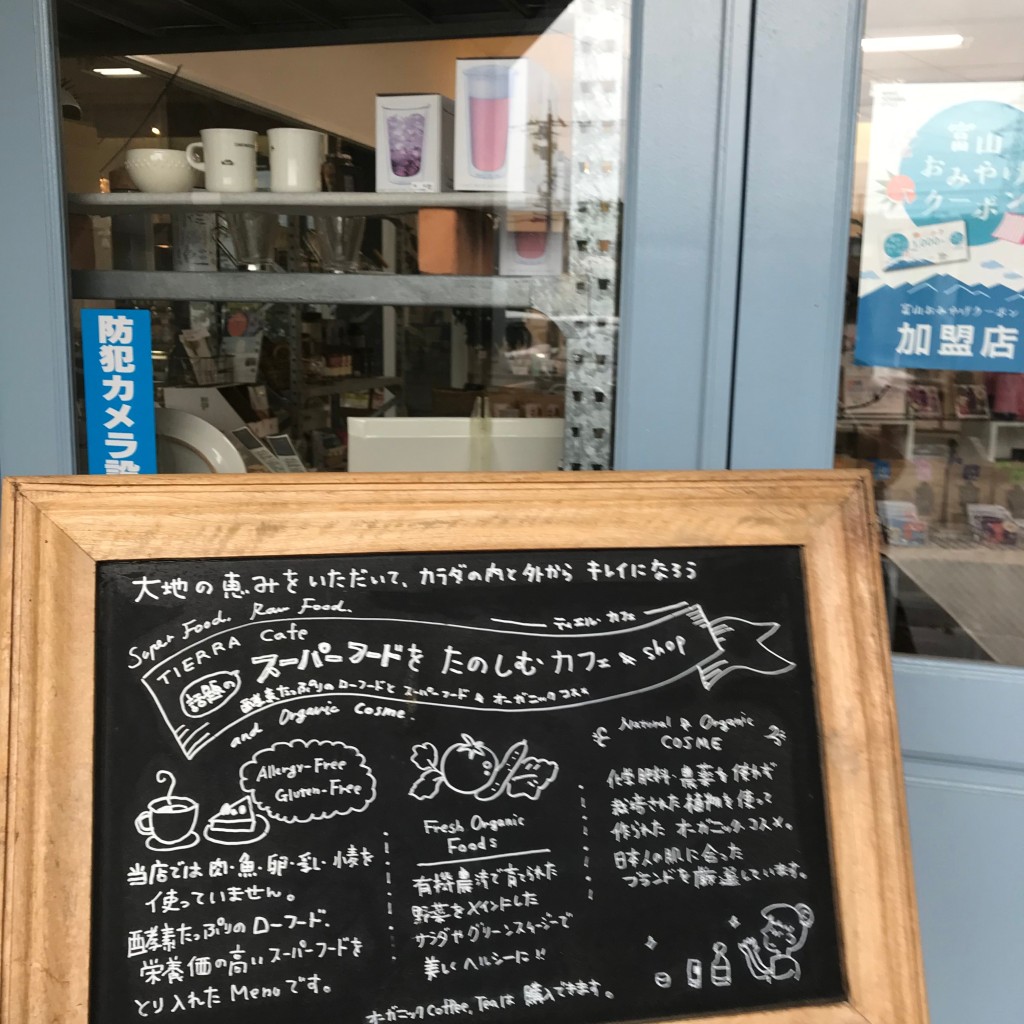 富山
おみやげ
クーポン
5,000
富山おみやげクーポン
加盟店
防犯カメラ設
大地の恵みをいただいて、カラダの内と外から キレイになろう
Super Food. Raw Food.
TIERRA Cafe
ティエル・カフェ
話題の スーパーフードを たのしむ カフェ & shop
酵素たっぷりのローフードと スーパーフード & オーガニックコスメ
and Organic Cosme.
Allergy-Free
Gluten-Free
当店では 肉・魚・卵・乳・小麦を
使っていません。
酵素たっぷりの ローフード、
栄養価の高い スーパーフードを
とり入れた Menu です。
Fresh Organic
Foods
有機農法で育てられた
野菜をメインにした
サラダや グリーンスムージーで
美しく ヘルシーに!!
Natural & Organic
COSME
化学肥料・農薬を使わず
栽培された 植物を使って
作られた オーガニックコスメ。
日本人の肌に合った
ブランドを厳選しています。
オーガニックCoffee, Teaは 購入できます。